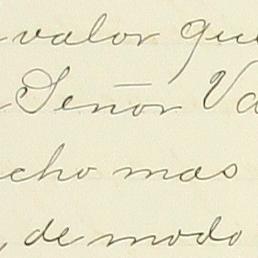 valor que
Señor Va
cho mas
, de modo